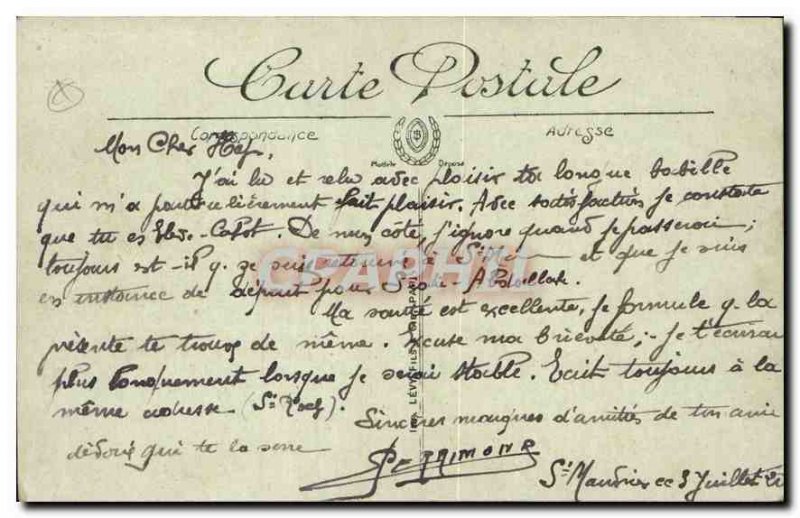 Carte Postale
Correspondance
Adresse
Modèle Déposé
Mon Cher
J'ai lu et relu avec plaisir ta longue babille
qui m'a particulièrement fait plaisir. Avec satisfaction je constate
que tu es Elve-Cabot. De mon côté, j'ignore quand je passerai ;
toujours est-il q. je suis retenu à St M et que je suis
en instance de départ pour Sidi-Abdallah.
Ma santé est excellente, je formule q. la
présente te trouve de même. Excuse ma brièveté ; - je t'écrirai
plus longuement lorsque je serai stable. Ecrit toujours à la
même adresse (St ).
Sincères marques d'amitiés de ton ami
dévoué qui te la serre
St Mandrier ce 3 Juillet
LEVY FILS
CPAPHIL